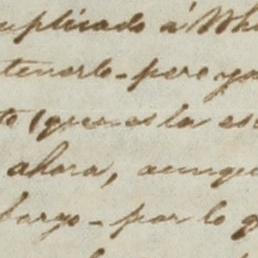 uplicado á Wh
tenerlo - pero ya
to (que esta es
ahora, aunque
bargo - por lo q